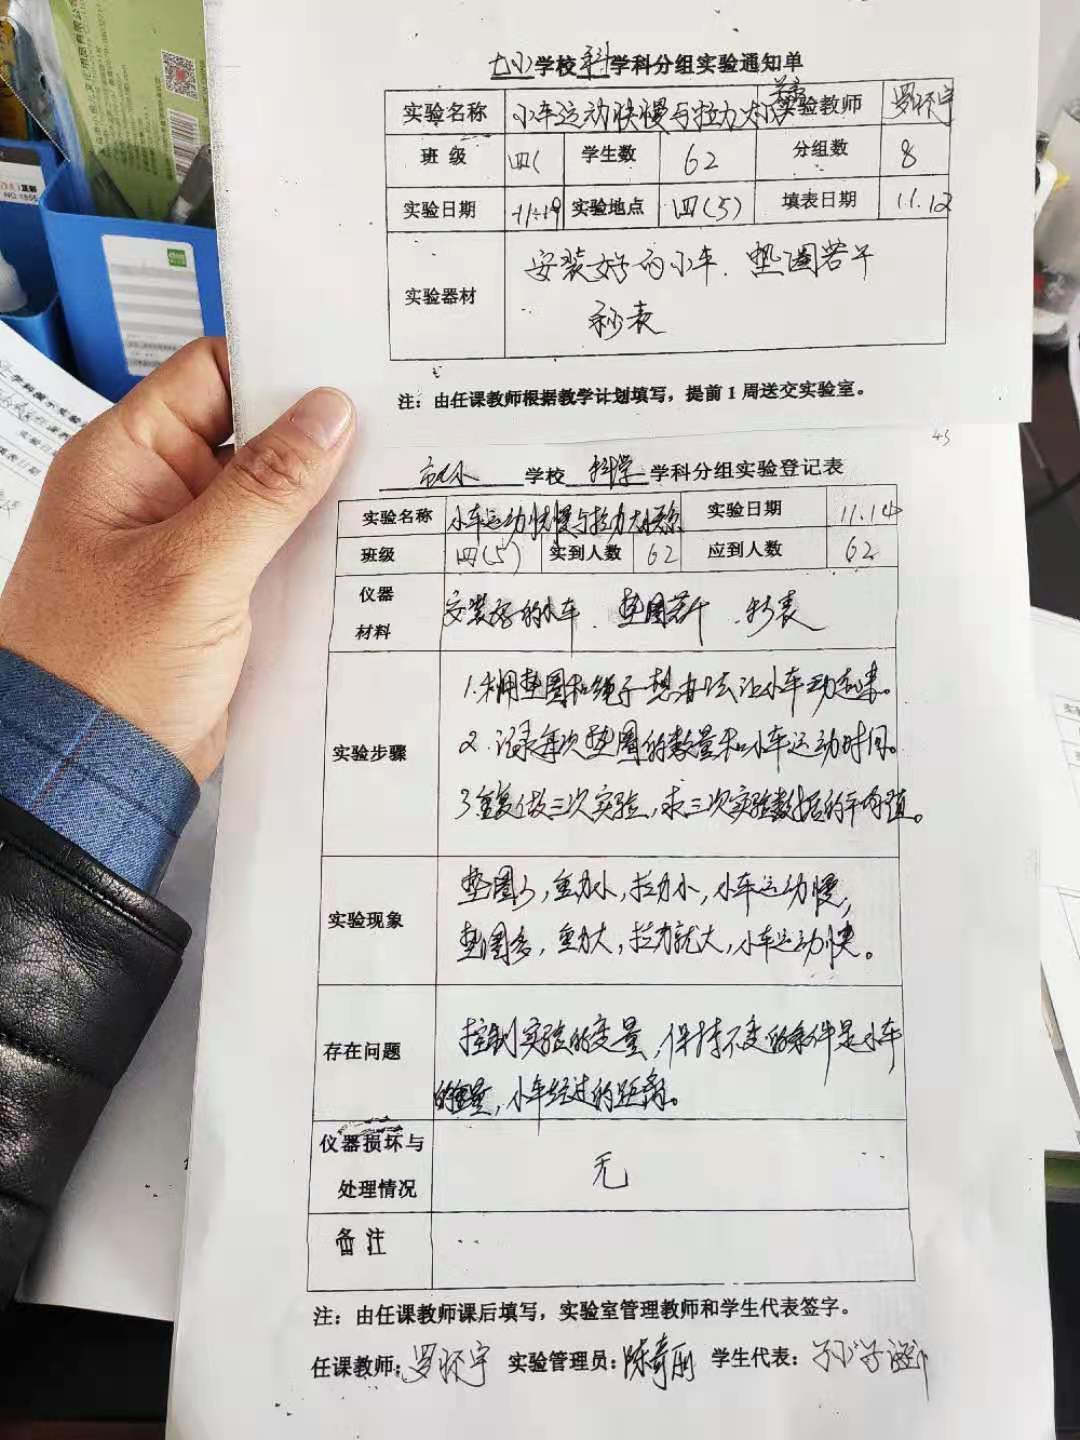 七小学校科学科分组实验通知单
实验名称 小车运动快慢与拉力大小关系 实验教师 罗怀宇
班 级 四( 学生数 62 分组数 8
实验日期 11.19 实验地点 四(5) 填表日期 11.12
实验器材 安装好的小车. 垫圈若干
秒表
注：由任课教师根据教学计划填写，提前1周送交实验室。
学校 科学 学科分组实验登记表
实验名称 小车运动快慢与拉力大小关系 实验日期 11.14
班级 四(5) 实到人数 62 应到人数 62
仪器
材料
安装好的小车. 垫圈若干 .秒表
实验步骤
1.利用垫圈和绳子想办法让小车动起来。
2.记录每次垫圈的数量和小车运动时间。
3.重复做三次实验,求三次实验数据的平均值。
实验现象
垫圈少,重力小,拉力小,小车运动慢,
垫圈多,重力大,拉力就大,小车运动快。
存在问题
控制实验的变量,保持不变的条件是小车
的重量,小车经过的距离。
仪器损坏与
处理情况
无
备注
注：由任课教师课后填写，实验室管理教师和学生代表签字。
任课教师：罗怀宇 实验管理员：陈奇丽 学生代表：
NO.1855